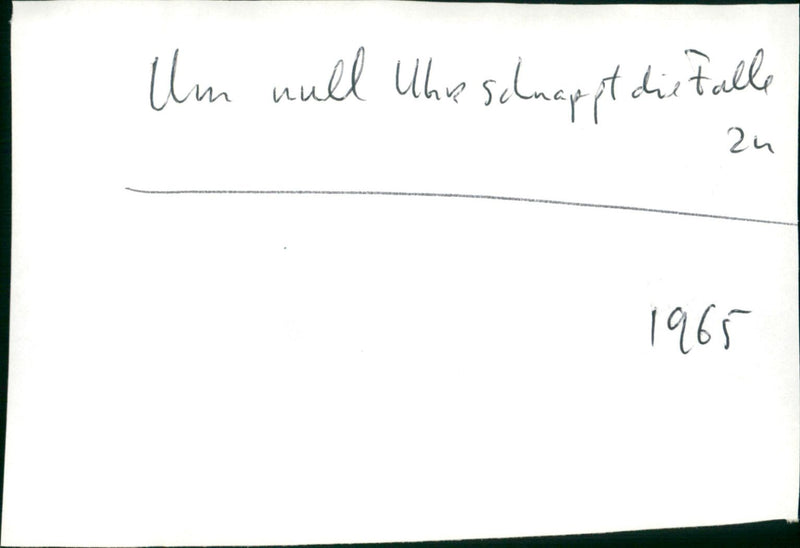 Um null Uhr schnappt die Falle
zu
1965